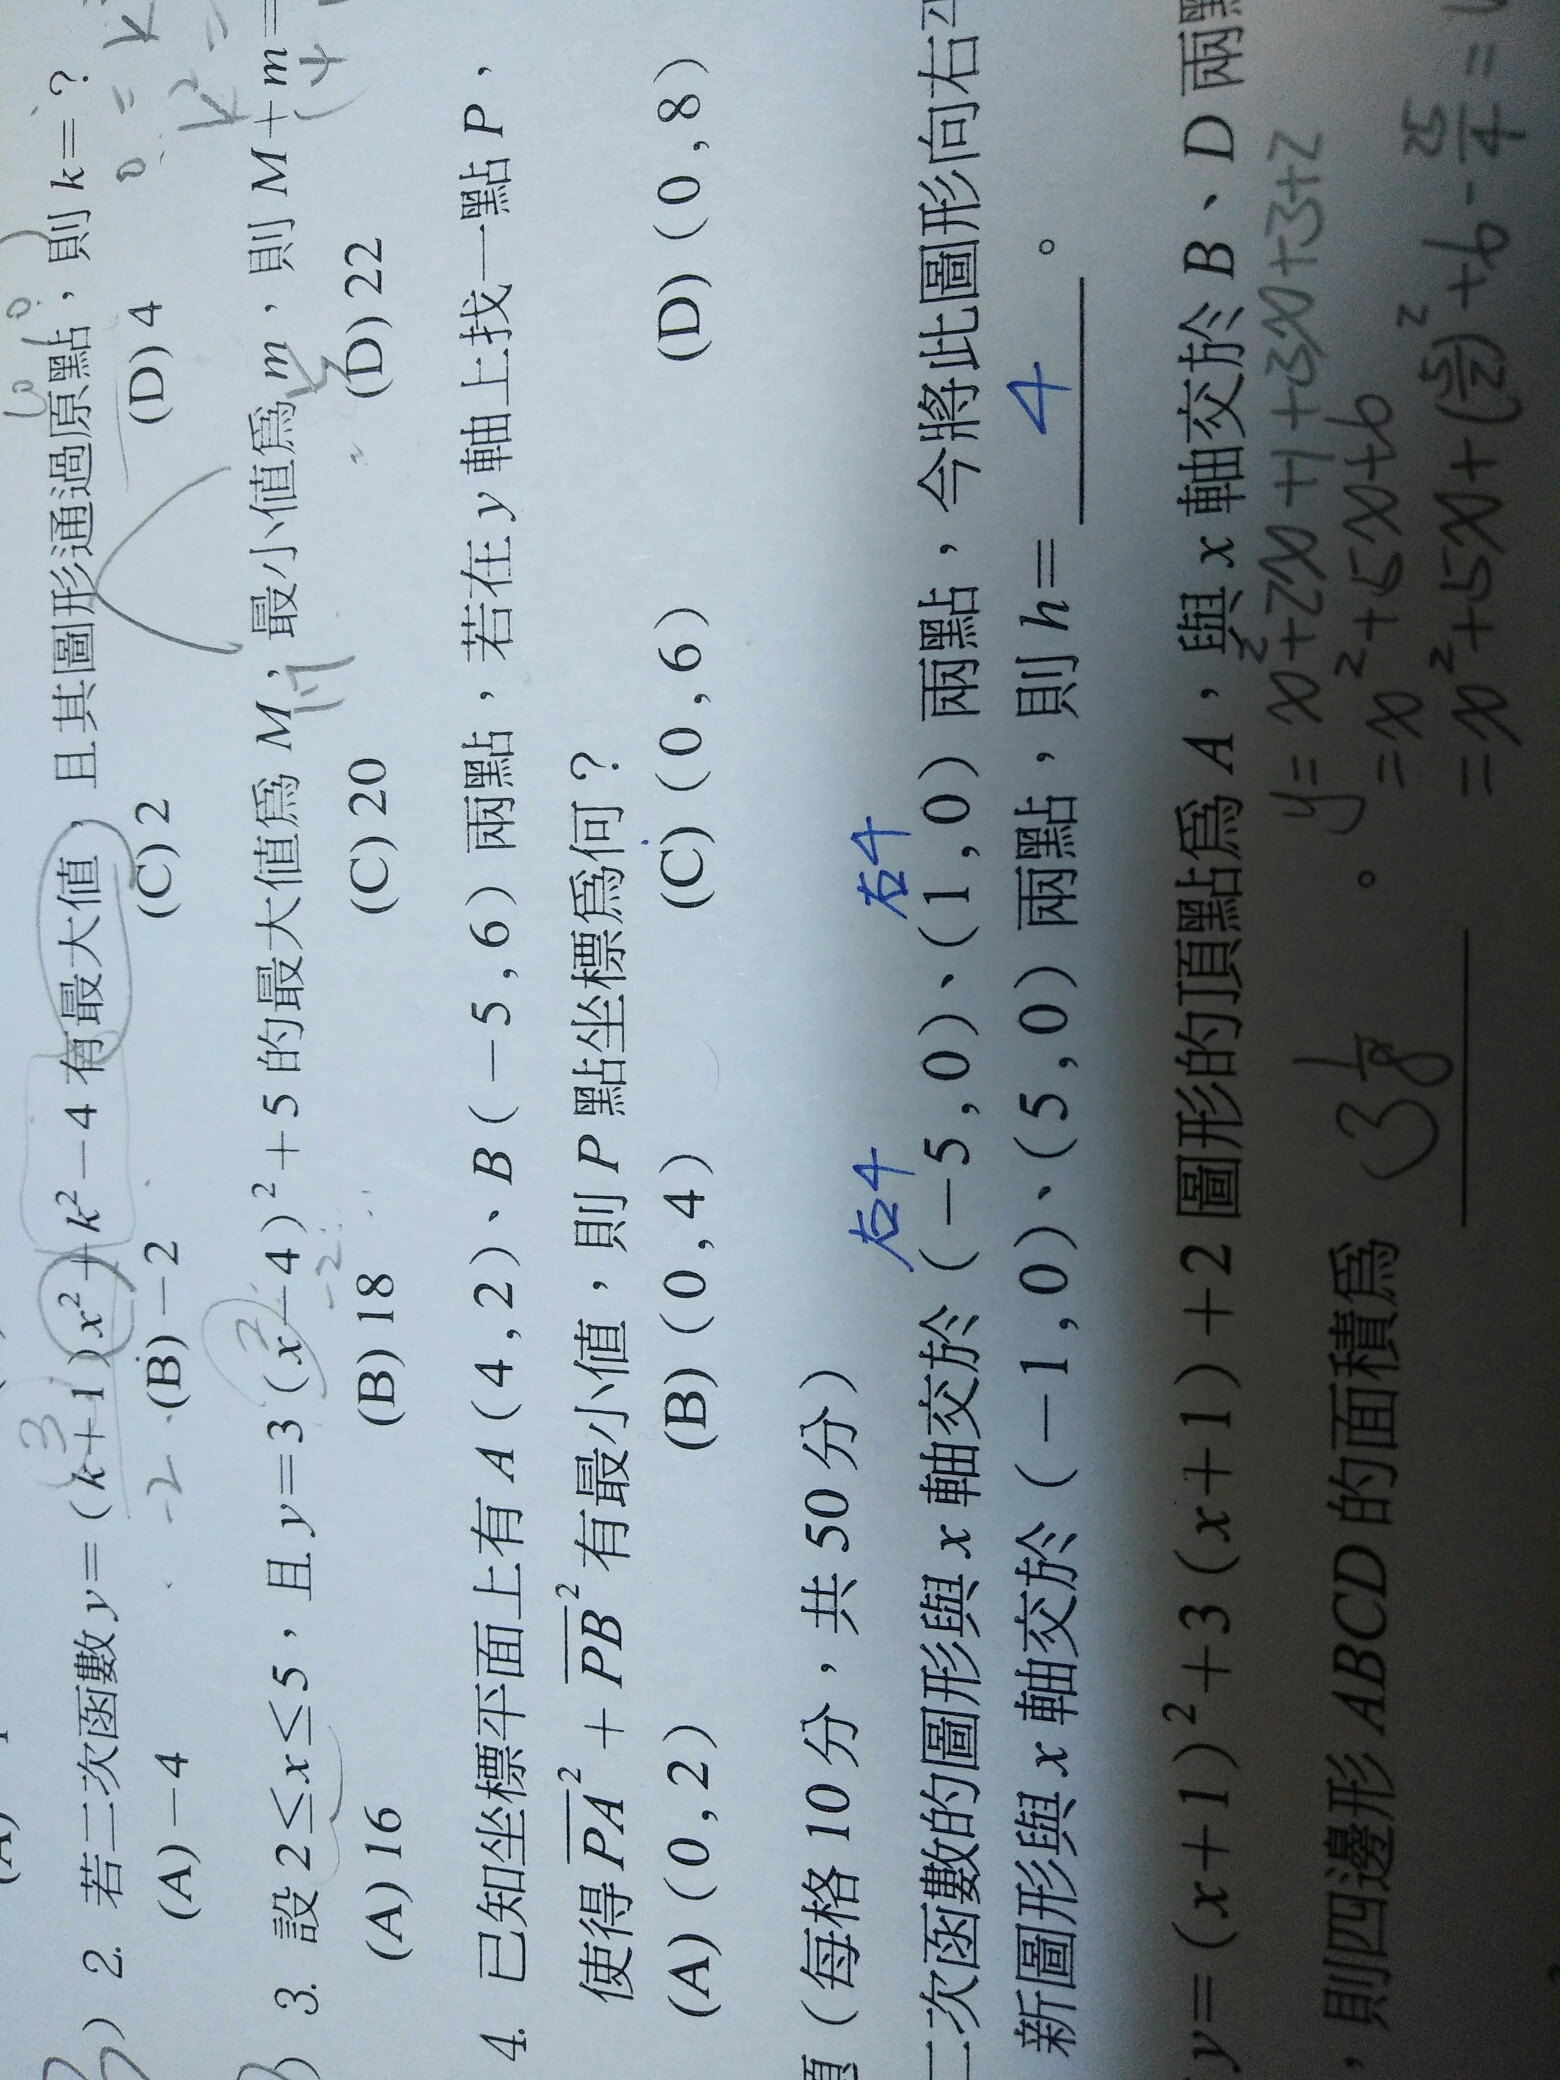 2. 若二次函數 y=(k+1)x²+k²-4 有最大值，且其圖形通過原點，則 k=？
(A) -4 (B) -2 (C) 2 (D) 4
3. 設 2≤x≤5，且 y=3(x-4)²+5 的最大值為 M，最小值為 m，則 M+m=
(A) 16 (B) 18 (C) 20 (D) 22
4. 已知坐標平面上有 A(4,2)、B(-5,6) 兩點，若在 y 軸上找一點 P，
使得 PA²+PB² 有最小值，則 P 點坐標為何？
(A) (0,2) (B) (0,4) (C) (0,6) (D) (0,8)
（每格 10 分，共 50 分）
右4 右4
二次函數的圖形與 x 軸交於 (-5,0)、(1,0) 兩點，今將此圖形向右
新圖形與 x 軸交於 (-1,0)、(5,0) 兩點，則 h= 4 。
y=(x+1)²+3(x+1)+2 圖形的頂點為 A，與 x 軸交於 B、D 兩
y=x²+2x+1+3x+3+2
，則四邊形 ABCD 的面積為 3 1/8 。
=x²+5x+6
=x²+5x+(5/2)²+6-25/4=